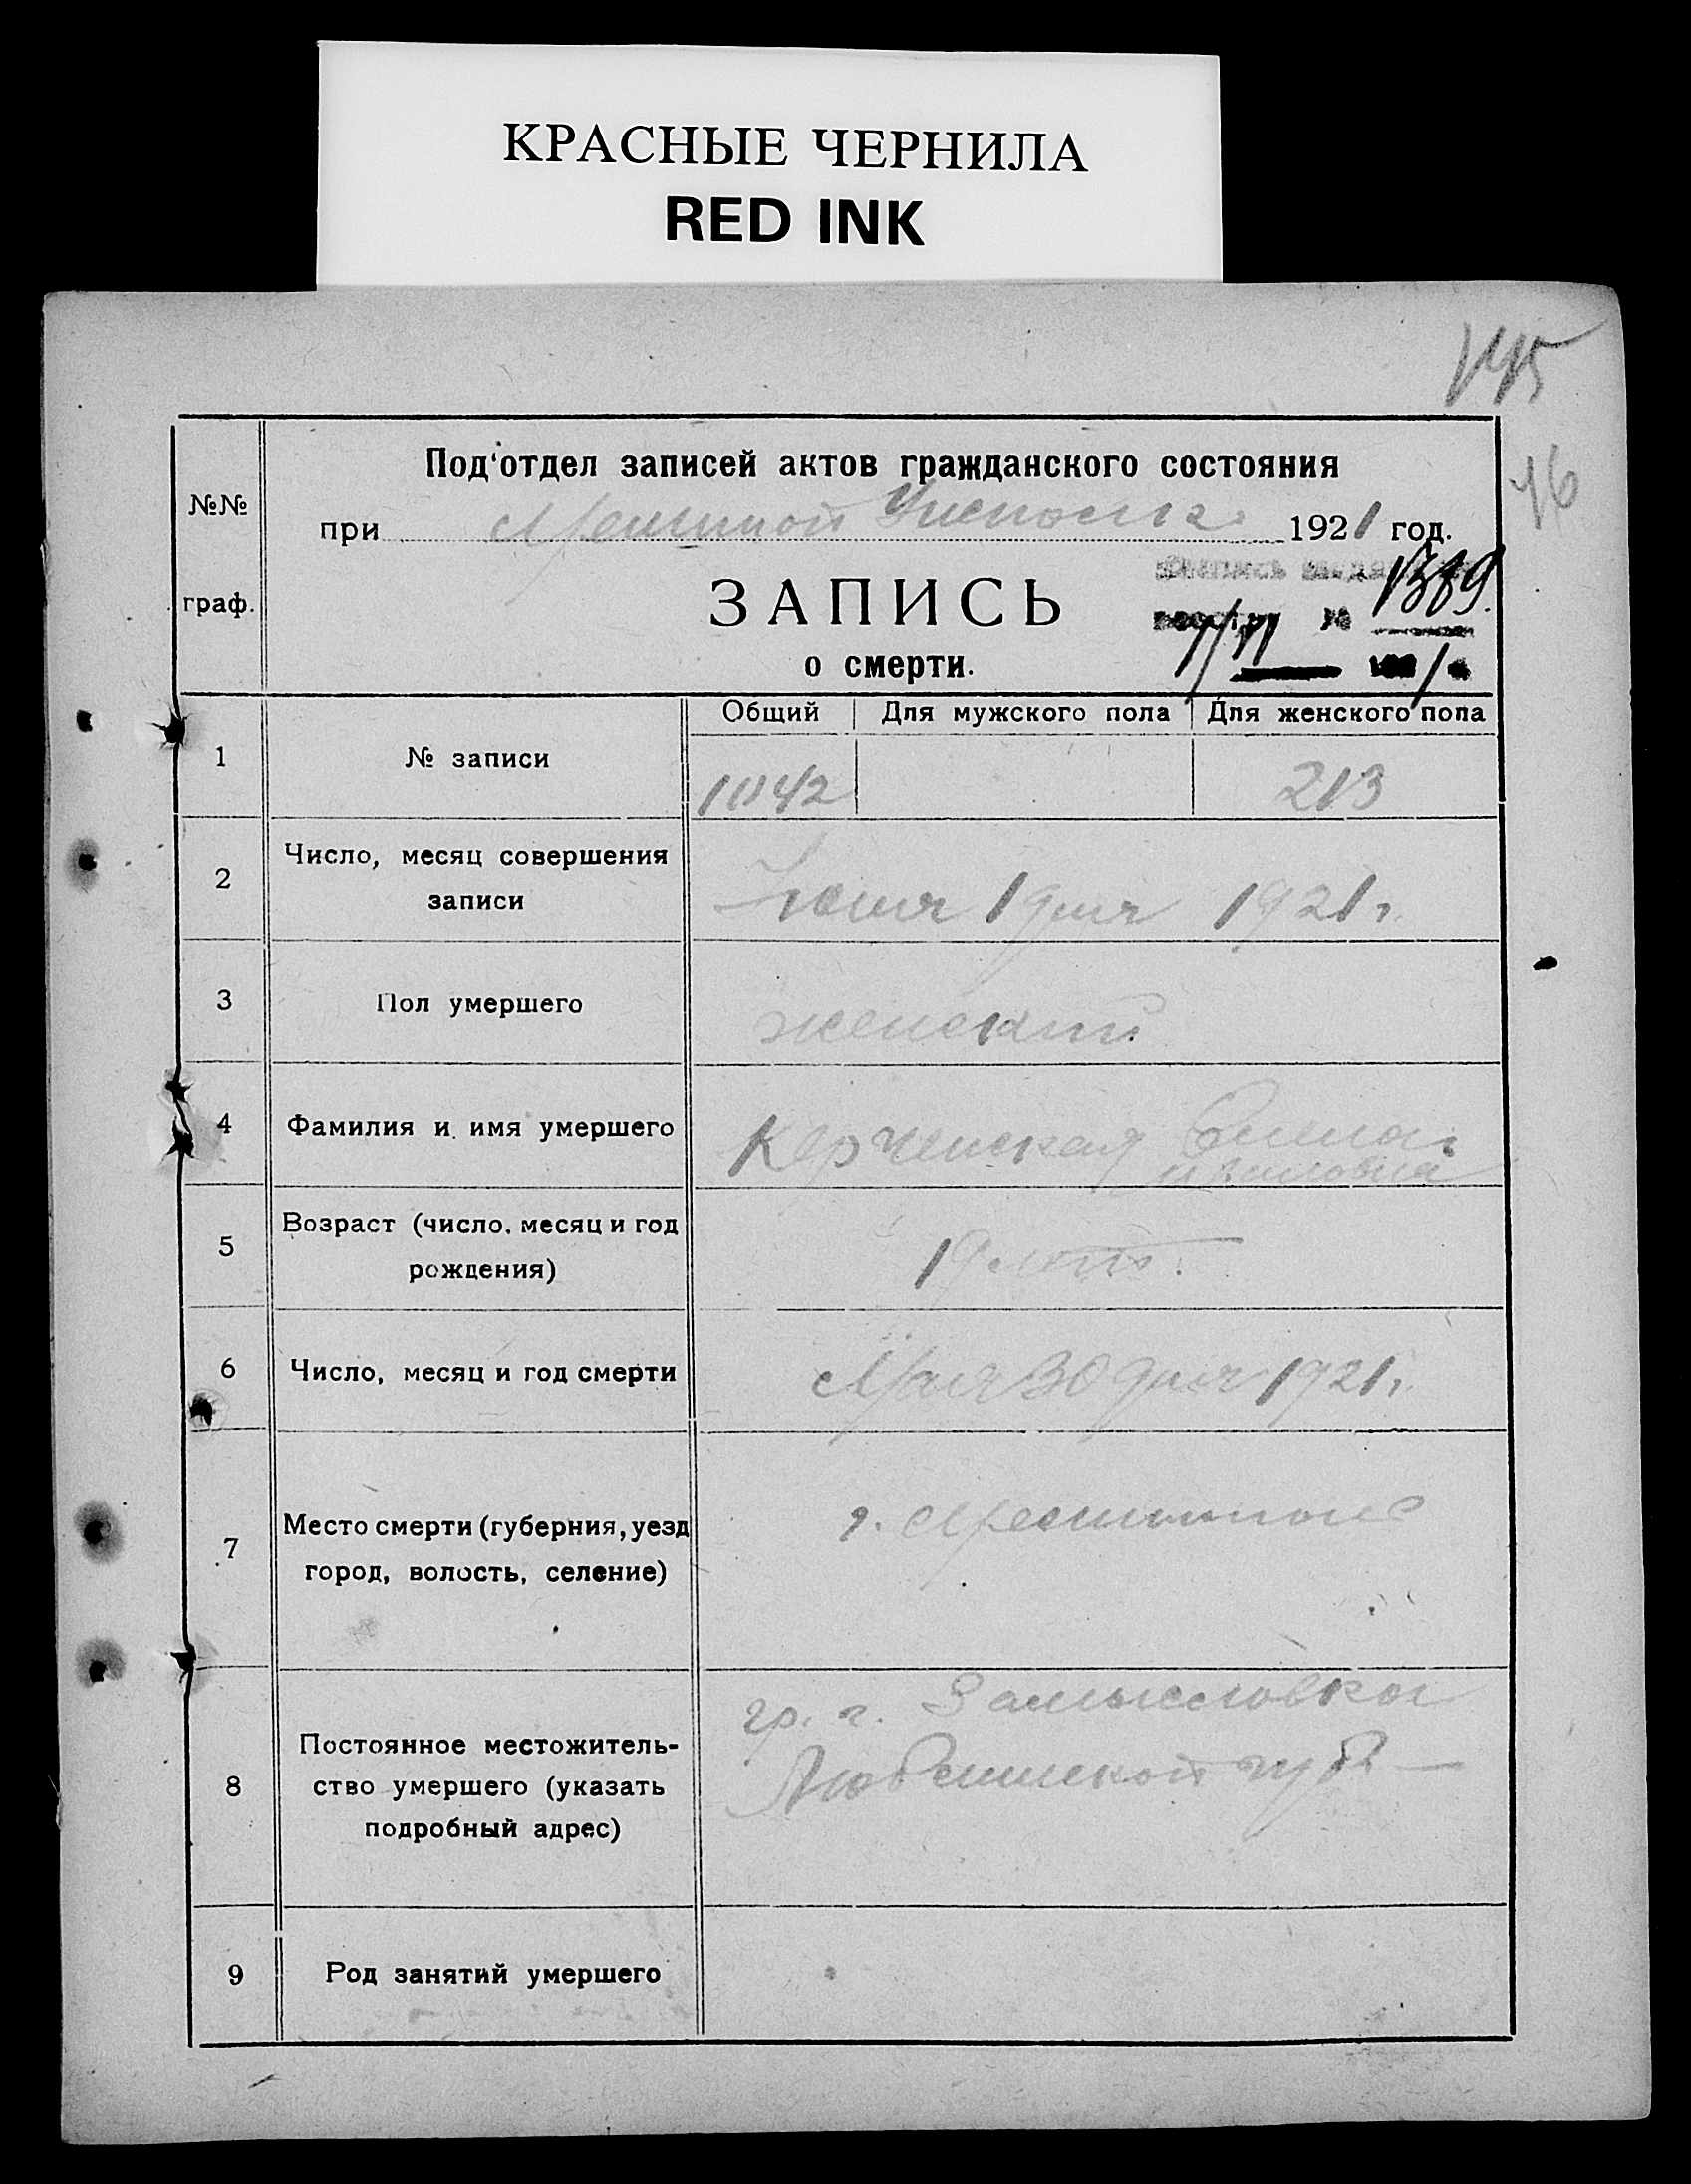 КРАСНЫЕ ЧЕРНИЛА
RED INK
145
16
Под'отдел записей актов гражданского состояния
№№
при 1921 год.
1389.
граф.
ЗАПИСЬ
о смерти.
Общий Для мужского пола Для женского пола
1 № записи 1042 213
2 Число, месяц совершения
записи
Июня 1 дня 1921 г.
3 Пол умершего женский.
4 Фамилия и имя умершего Керченская
5 Возраст (число, месяц и год
рождения)
19 лет.
6 Число, месяц и год смерти Мая 30 дня 1921 г.
7 Место смерти (губерния, уезд
город, волость, селение)
г.
8 Постоянное местожитель-
ство умершего (указать
подробный адрес)
гр. г.
губ
9 Род занятий умершего